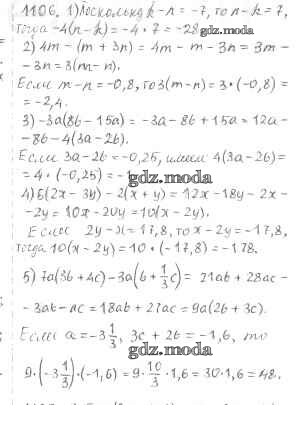 1106. 1) Поскольку k-n = -7, то n-k = 7,
тогда -4(n-k) = -4 • 7 = -28
gdz.moda
2) 4m - (m + 3n) = 4m - m - 3n = 3m -
- 3n = 3(m-n).
Если m-n = -0,8, то 3(m-n) = 3 • (-0,8) =
= -2,4.
3) -3a(8b - 15a) = -3a - 8b + 15a = 12a -
- 8b - 4(3a - 2b).
Если 3a - 2b = -0,25, 4(3a - 2b) =
= 4 • (-0,25) = -1
gdz.moda
4) 6(2x - 3y) - 2(x + y) = 12x - 18y - 2x -
- 2y = 10x - 20y = 10(x - 2y).
Если 2y - x = 17,8, то x - 2y = -17,8,
тогда 10(x - 2y) = 10 • (-17,8) = -178.
gdz.moda
5) 7a(3b + 4c) - 3a(b + 1/3 c) = 21ab + 28ac -
- 3ab - ac = 18ab + 27ac = 9a(2b + 3c).
Если a = -3 1/3, 3c + 2b = -1,6, то
gdz.moda
9 • (-3 1/3) • (-1,6) = 9 • 10/3 • 1,6 = 30 • 1,6 = 48.